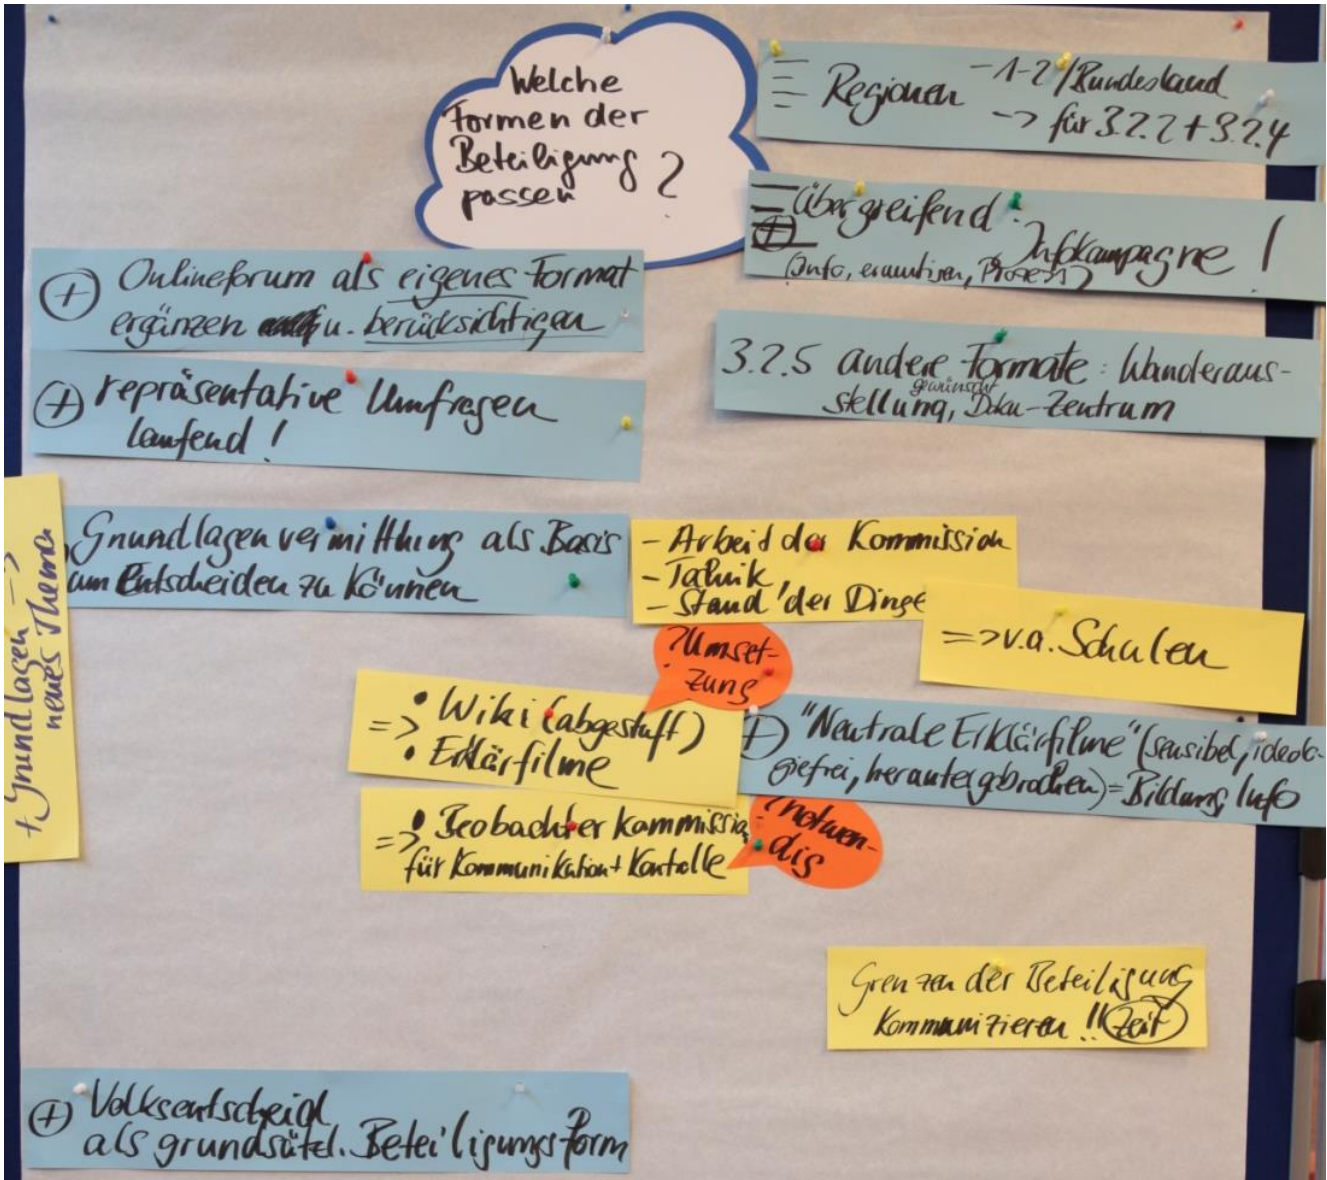 Welche
Formen der
Beteiligung
passen ?
Regionen - 1-2/Bundesland
-> für 3.2.2 + 3.2.4
Übergreifend: Infokampagne !
(Info, Prozess)
3.2.5 andere Formate: Wanderaus-
gewünscht
stellung, Doku-Zentrum
+ Onlineforum als eigenes Format
ergänzen u. berücksichtigen
+ repräsentative Umfragen
laufend !
+ Grundlagen ->
neues Thema
Grundlagenvermittlung als Basis
um Entscheiden zu können
- Arbeit der Kommission
- Technik
- Stand der Dinge
=> v.a. Schulen
? Umset-
zung
=> • Wiki (abgestuft)
• Erklärfilme
+ "Neutrale Erklärfilme" (sensibel, ideolo-
giefrei, heruntergebrochen) = Bildung, Info
=> • Beobachterkommissio
für Kommunikation + Kontrolle
notwen-
dig
Grenzen der Beteiligung
kommunizieren !! Zeit
+ Volksentscheid
als grundsätzl. Beteiligungsform